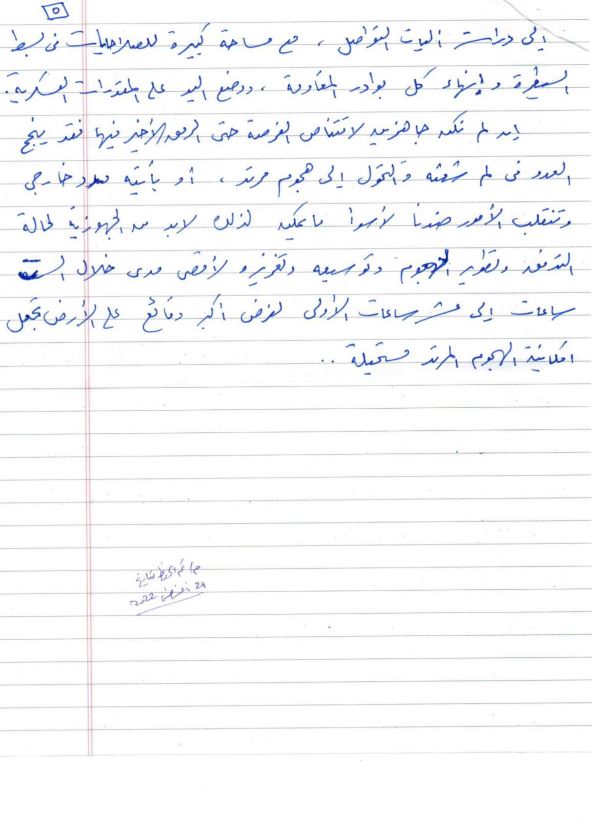 ٥
إلى دراسة آليات التواصل ، مع مساحة كبيرة للصلاحيات في بسط
السيطرة وإنهاء كل بوادر المقاومة ، ووضع اليد على المقدرات العسكرية.
إن لم نكن جاهزين لاقتناص الفرصة حتى الرمق الأخير فيها فقد ينجح
العدو في لم شعثه والتحول إلى هجوم مرتد ، أو يأتيه مدد خارجي
وتنقلب الأمور ضدنا لأسوأ ما يمكن لذلك لابد من الجهوزية لحالة
التدفق وتطوير الهجوم وتوسيعه وتعزيزه لأقصى مدى خلال الست
ساعات إلى عشر ساعات الأولى لفرض أكبر وقائع على الأرض تجعل
امكانية الهجوم المرتد مستحيلة ..
24 2022